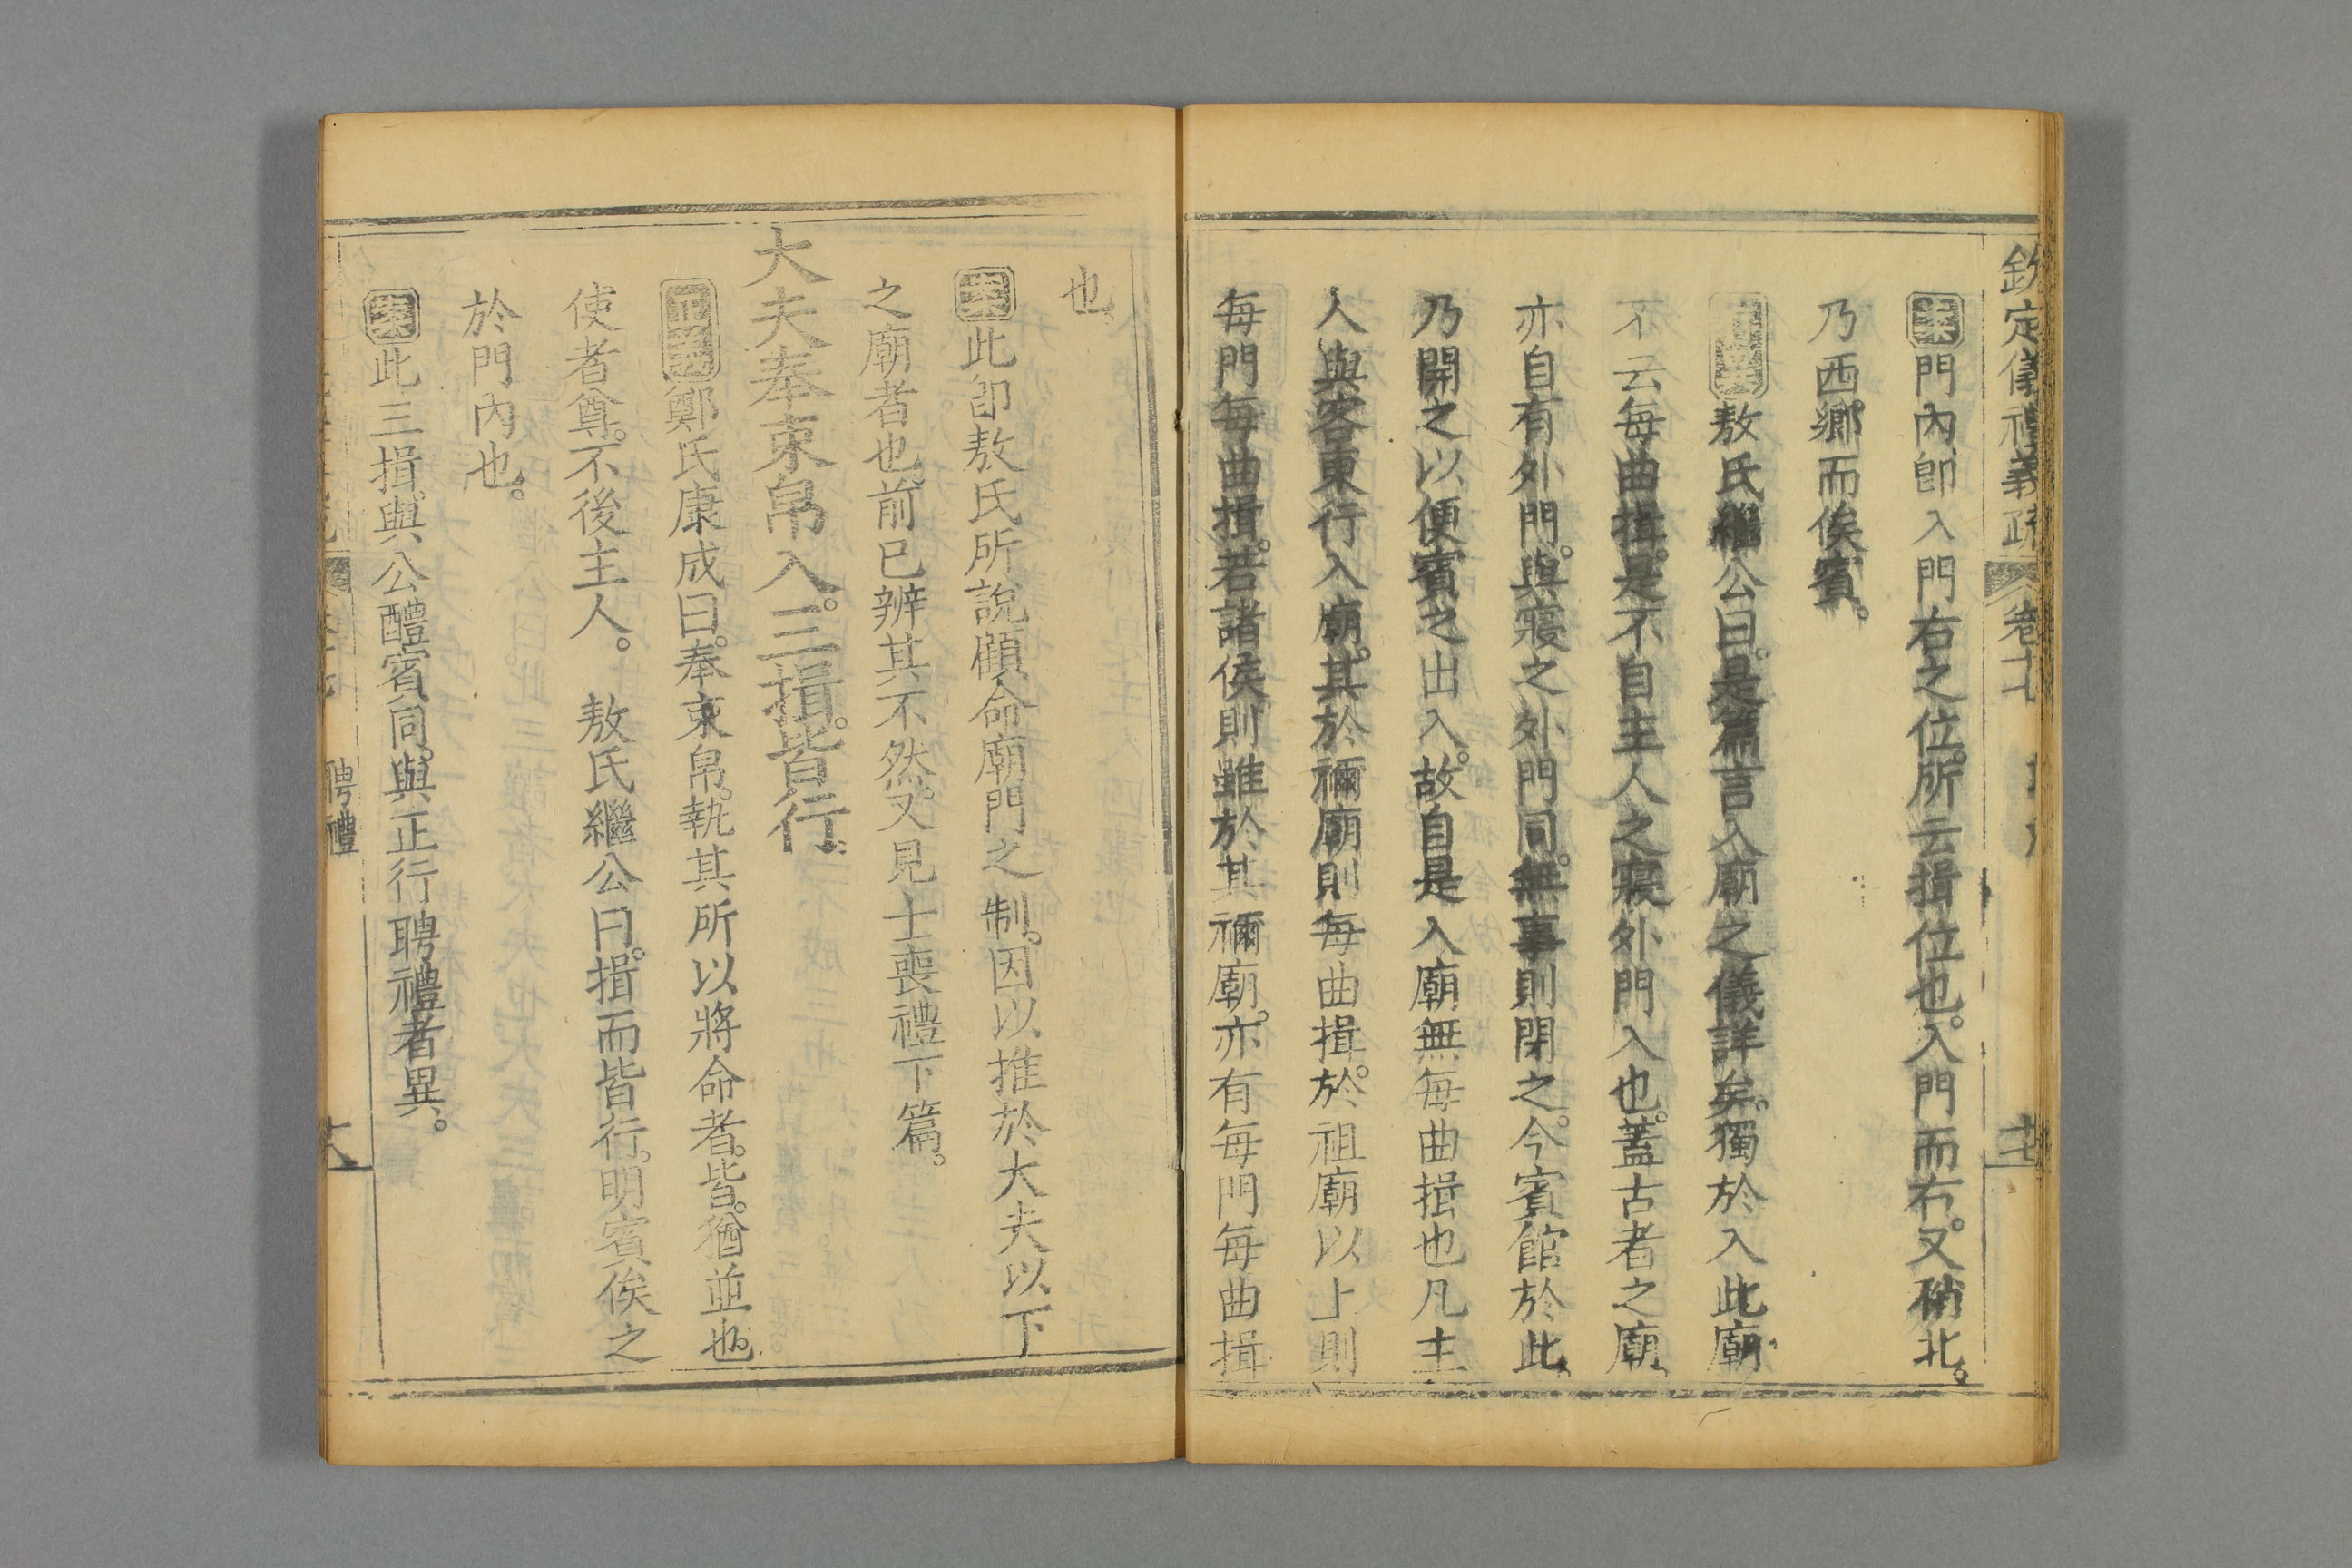 欽定儀禮義疏 卷十七
案門內卽入門右之位所云揖位也入門而右又稍北。
乃西鄉而俟賓。
敖氏繼公曰是篇言入廟之儀詳矣獨於入此廟
不云每曲揖是不自主人之寢外門入也蓋古者之廟
亦自有外門與寢之外門同無事則閉之今賓館於此
乃開之以便賓之出入故自是入廟無每曲揖也凡主
人與客東行入廟其於禰廟則每曲揖於祖廟以上則
每門每曲揖若諸侯則雖於其禰廟亦有每門每曲揖
也
案此卽敖氏所說顧命廟門之制因以推於大夫以下
之廟者也前已辨其不然又見士喪禮下篇。
大夫奉束帛入三揖皆行
正義鄭氏康成曰奉束帛執其所以將命者皆猶並也
使者尊不後主人。 敖氏繼公曰揖而皆行明賓俟之
於門內也。
案此三揖與公醴賓同與正行聘禮者異。
聘禮